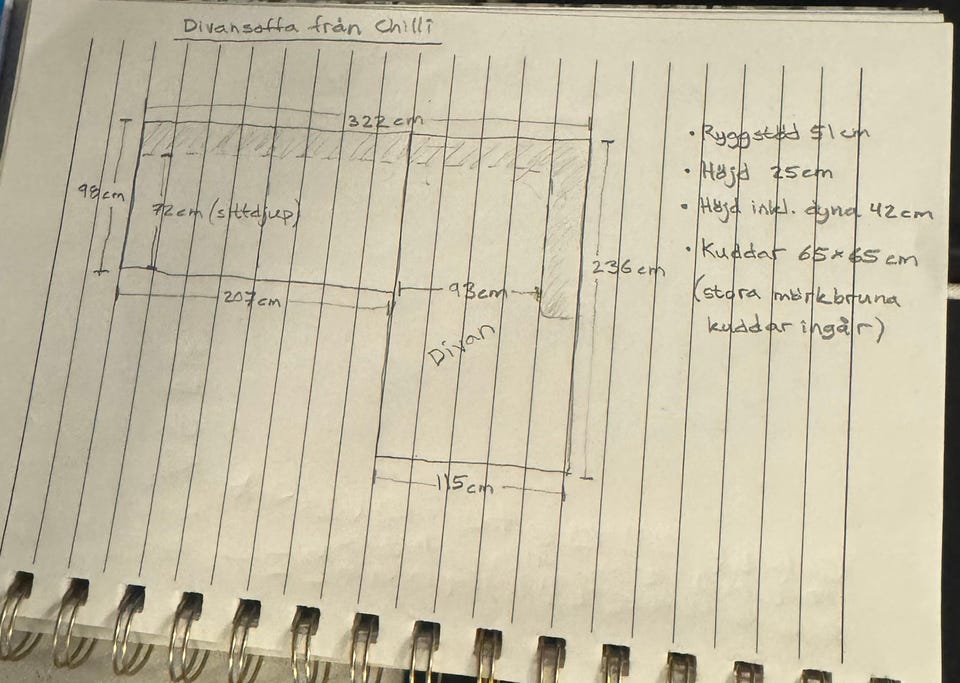 Divansoffa från Chilli
322 cm
98 cm
72 cm (sittdjup)
207 cm
93 cm
Divan
236 cm
115 cm
• Ryggstöd 51 cm
• Höjd 25 cm
• Höjd inkl. dyna 42 cm
• Kuddar 65 × 65 cm
(stora mörkbruna
kuddar ingår)